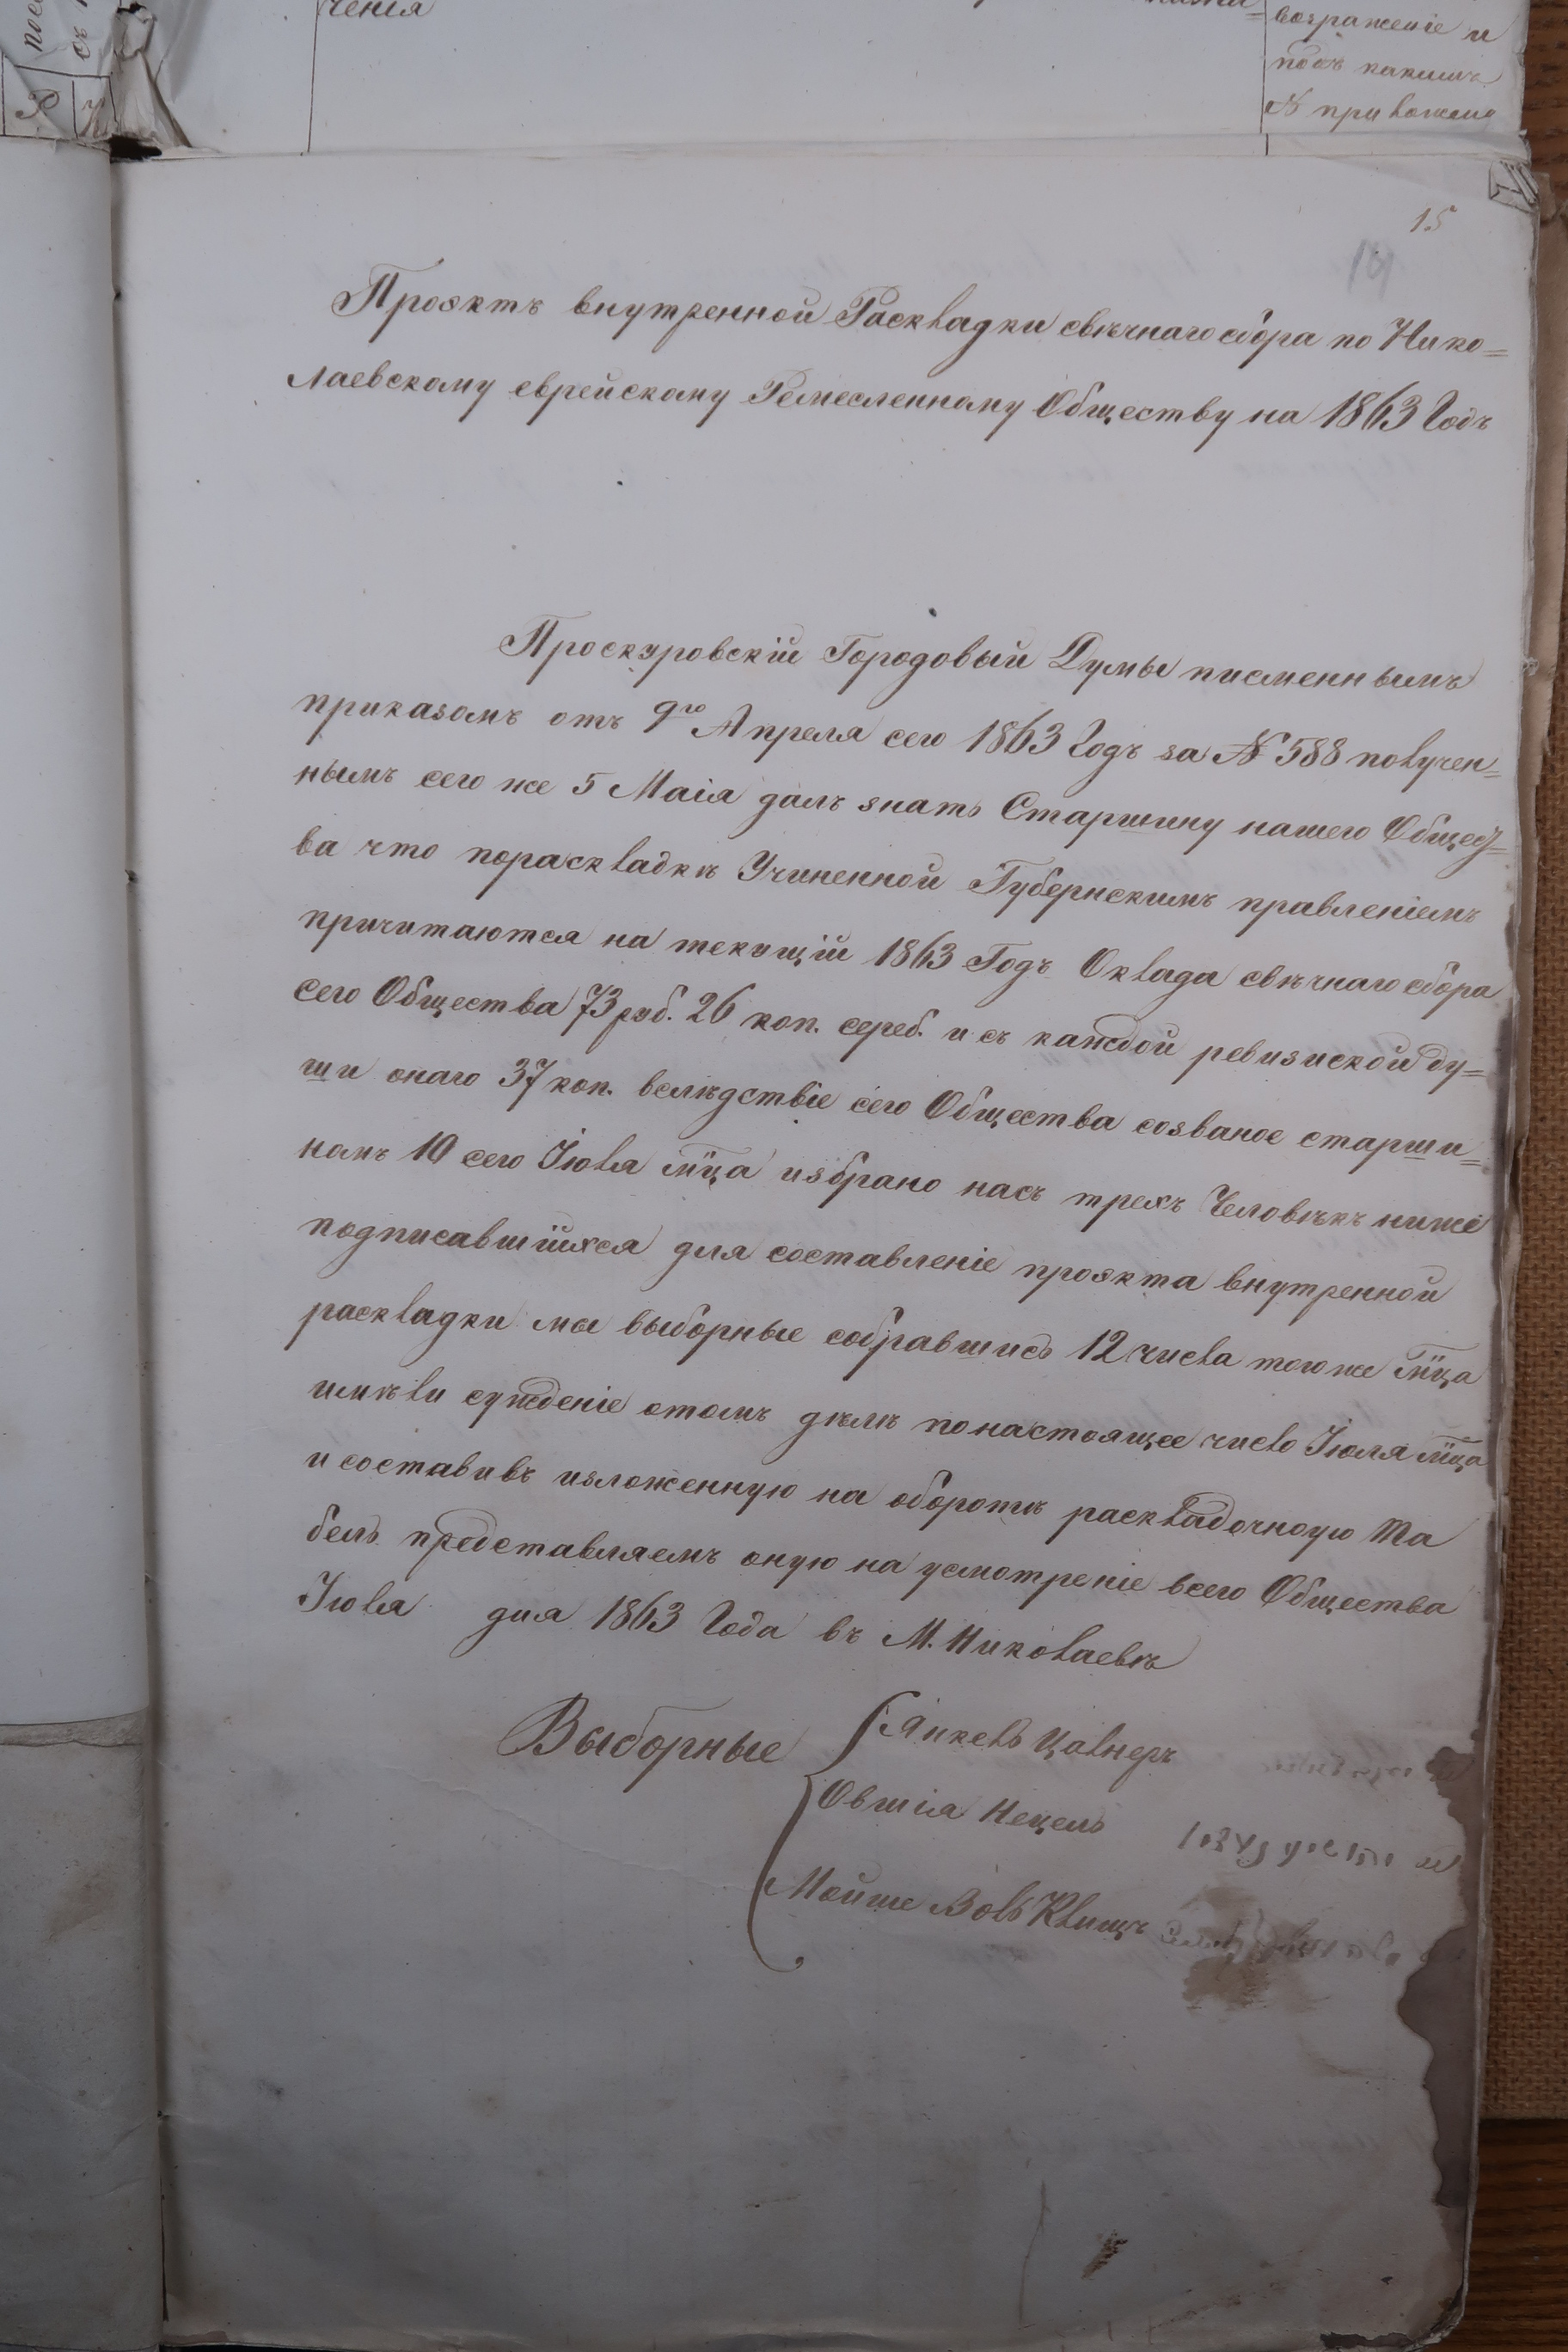 ченія
возраженіе и
подъ какимъ
№ приложена
15
14
Прояктъ внутренной Раскладки свѣчнаго сбора по Нико=
лаевскому еврейскому Ремесленному Обществу на 1863 Годъ
Проскуровскій Городовый Думы писменнымъ
приказомъ отъ 9го Апреля сего 1863 Годъ за № 588 получен=
нымъ сего же 5 Маія далъ знать Старшину нашего Общест=
ва что пораскладкѣ Учиненной Губернскимъ правленіемъ
причитаются на текущій 1863 Годъ Оклада свѣчнаго сбора
сего Общества 73 руб. 26 коп. сереб. и съ каждой ревизиской ду=
ши онаго 37 коп. велѣдствіе сего Общества созваное старши=
номъ 10 сего Іюля мѣца избрано насъ трехъ Человѣкъ ниже
подписавшийхся для составленіе проякта внутренной
раскладки мы выборные собравшись 12 числа тогоже мѣца
имѣли сужденіе отомъ дѣлѣ понастоящее число Іюля мѣца
и составивъ изложенную на оборотѣ раскладочную та
бель представляемъ оную на усмотреніе всего Общества
Іюля дня 1863 Года въ М. Николаевѣ
Выборные Янкель Цолнеръ
Овшія Нецель
Мойше Золь Клищъ